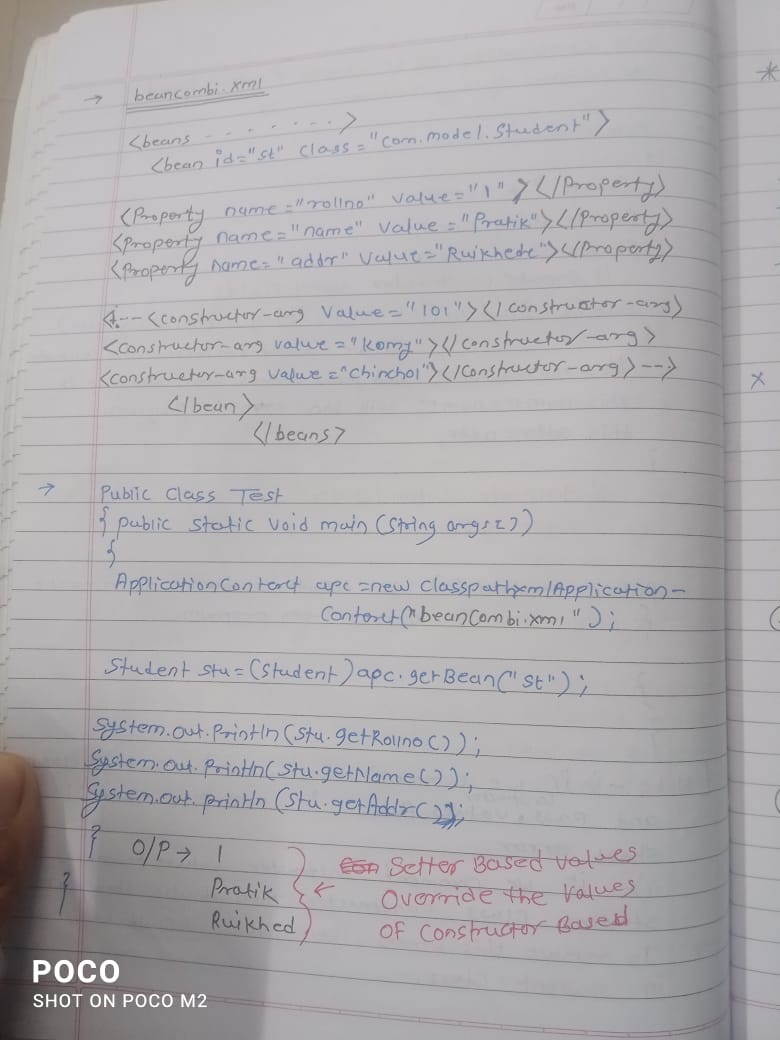 → beancombi.xml
<beans - - . . . . . . . >
<bean id="st" class="com.model.Student">
<Property name="rollno" value="1"></Property>
<Property name="name" value="Pratik"></Property>
<Property name="addr" value="Ruikhede"></Property>
<!-- <constructor-arg value="101"></constructor-arg>
<constructor-arg value="Komy"></constructor-arg>
<constructor-arg value="Chinchol"></constructor-arg> -->
</bean>
</beans>
→ Public Class Test
{ public static void main (String args[])
{
ApplicationContext apc = new ClasspathxmlApplication-
Context("beanCombi.xml");
Student stu = (Student) apc.getBean("st");
System.out.Println(stu.getRollno());
System.out.Println(stu.getName());
System.out.println(stu.getAddr());
} O/P → 1
Pratik
} Ruikhed
← Setter Based values
Override the values
OF Constructor Based
POCO
SHOT ON POCO M2